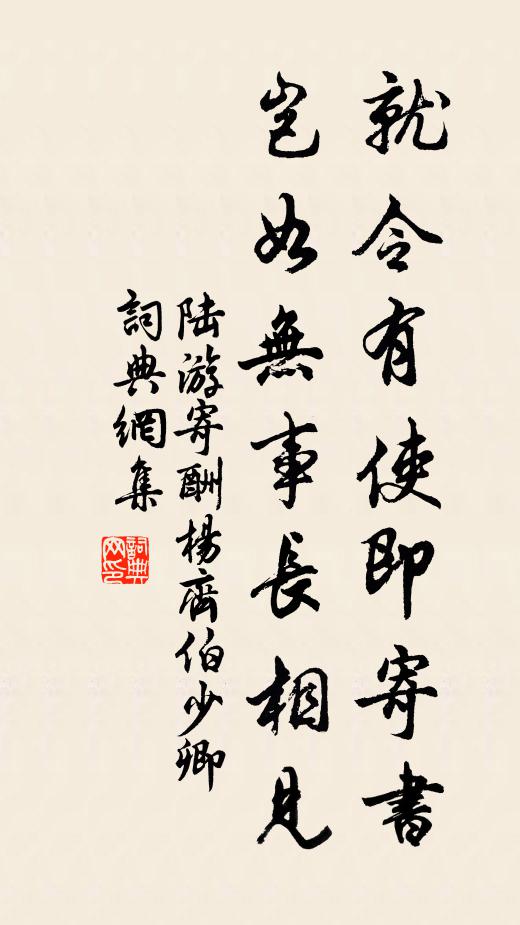 就令有使即寄書
豈如無事長相見
陸游寄酬楊齊伯少卿
詞典網集
詞典网印